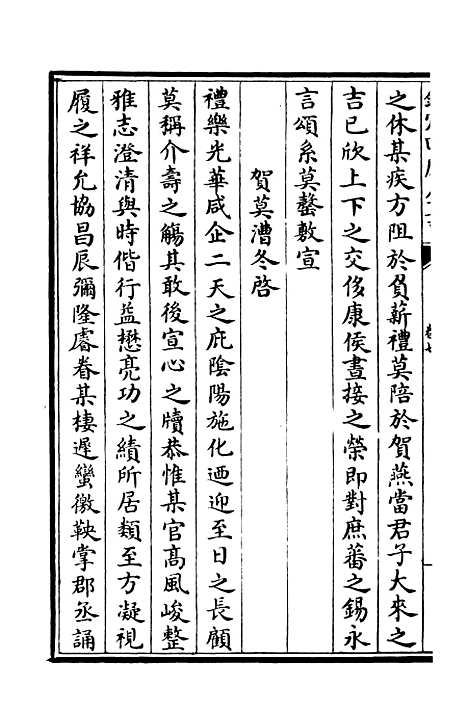 之休某疾方阻於負薪禮莫陪於賀燕當君子大來之
吉已欣上下之交侈康侯晝接之榮即對庶蕃之錫永
言頌系莫罄敷宣
賀莫漕冬啓
禮樂光華咸企二天之庇陰陽施化迺迎至日之長顧
莫稱介壽之觴其敢後宣心之牘恭惟某官高風峻整
雅志澄清與時偕行益懋亮功之績所居類至方凝視
履之祥允協昌辰彌隆睿眷某棲遲蠻徼鞅掌郡丞誦